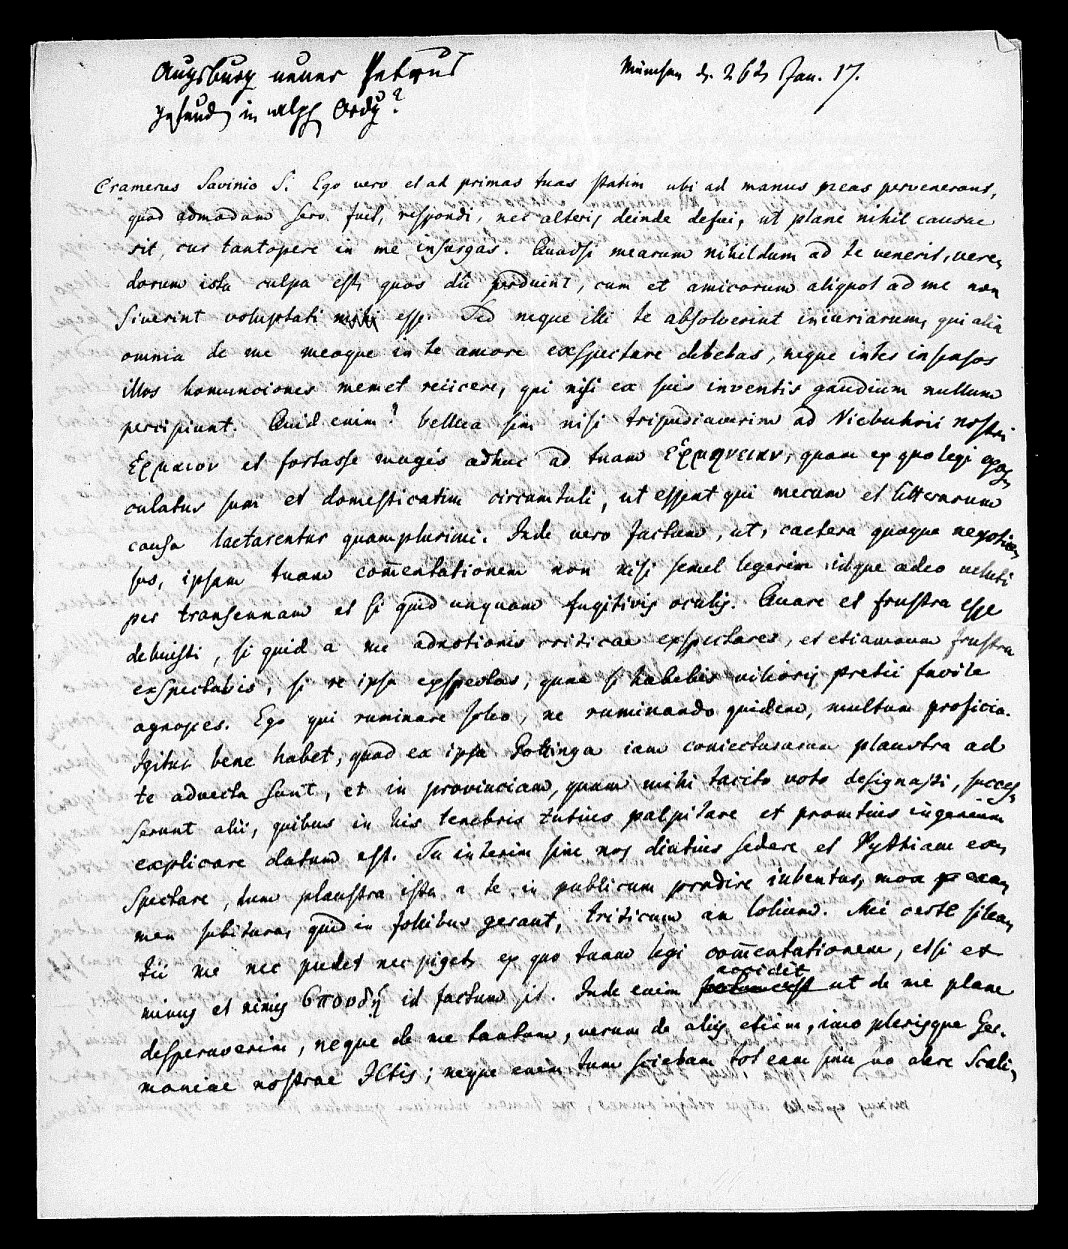 Augsburg neuer Petrus
gesund in welch Ordg?
München d. 26t Jan. 17.
Cramerus Savinio S. Ego vero et ad primas tuas statim ubi ad manus meas pervenerant,
quod admodum sero fuit, respondi, nec alteris deinde defui, ut plane nihil causae
sit, cur tantopere in me insurgas. Quodsi mearum nihildum ad te venerit, vere-
dorum ista culpa est, quos dii perduint, cum et amicorum aliquot ad me non
siverint voluptati esse. Sed neque illi te absolverint iniuriarum, qui alia
omnia de me meoque in te amore exspectare debebas, neque inter insulsos
illos homunciones memet reiicere, qui nisi ex suis inventis gaudium nullum
percipiunt. Quid enim? bellua sim nisi tripudiaverim ad Niebuhrii nostri
Ερμαιον et fortasse magis adhuc ad tuam Ερμηνειαν, quam ex quo legi exos-
culatus sum et domesticatim circumtuli, ut essent qui mecum et litterarum
causa laetarentur quamplurimi. Inde vero factum, ut, caetera quoque negotio-
sus, ipsam tuam com̅entationem non nisi semel legerim idque adeo veluti
per transennam et si quid unquam fugitivis oculis. Quare et frustra esse
debuisti, si quid a me adnotionis criticae exspectares, et etiamnum frustra
exspectabis, si re ipsa exspectas, quae si habebis vilioris pretii facile
agnosces. Ego qui ruminare soleo, ne ruminando quidem, multum proficio.
Igitur bene habet, quod ex ipsa Gottinga iam coniecturarum plaustra ad
te advecta sunt, et in provinciam, quam mihi tacito voto designasti, succes-
serunt alii, quibus in his tenebris tutius palpitare et promtius ingenium
explicare datum est. Tu interim sine nos diutius sedere et Pythiam ex-
spectare, dum plaustra ista a te in publicum prodire iubentur, mox exa-
men subitura, quid in follibus gerant, triticum an lolium. Mei certe silen-
tii me nec pudet nec piget, ex quo tuam legi com̅entationem, etsi ex
minus et nimis σπουδῇ id factum sit. Inde enim accidit ut de me plane
desperaverim, neque de me tantum, verum de aliis etiam, imo plerisque Ger-
maniae nostrae JCtis; neque enim tum sciebam tot eam suo alere Scali-